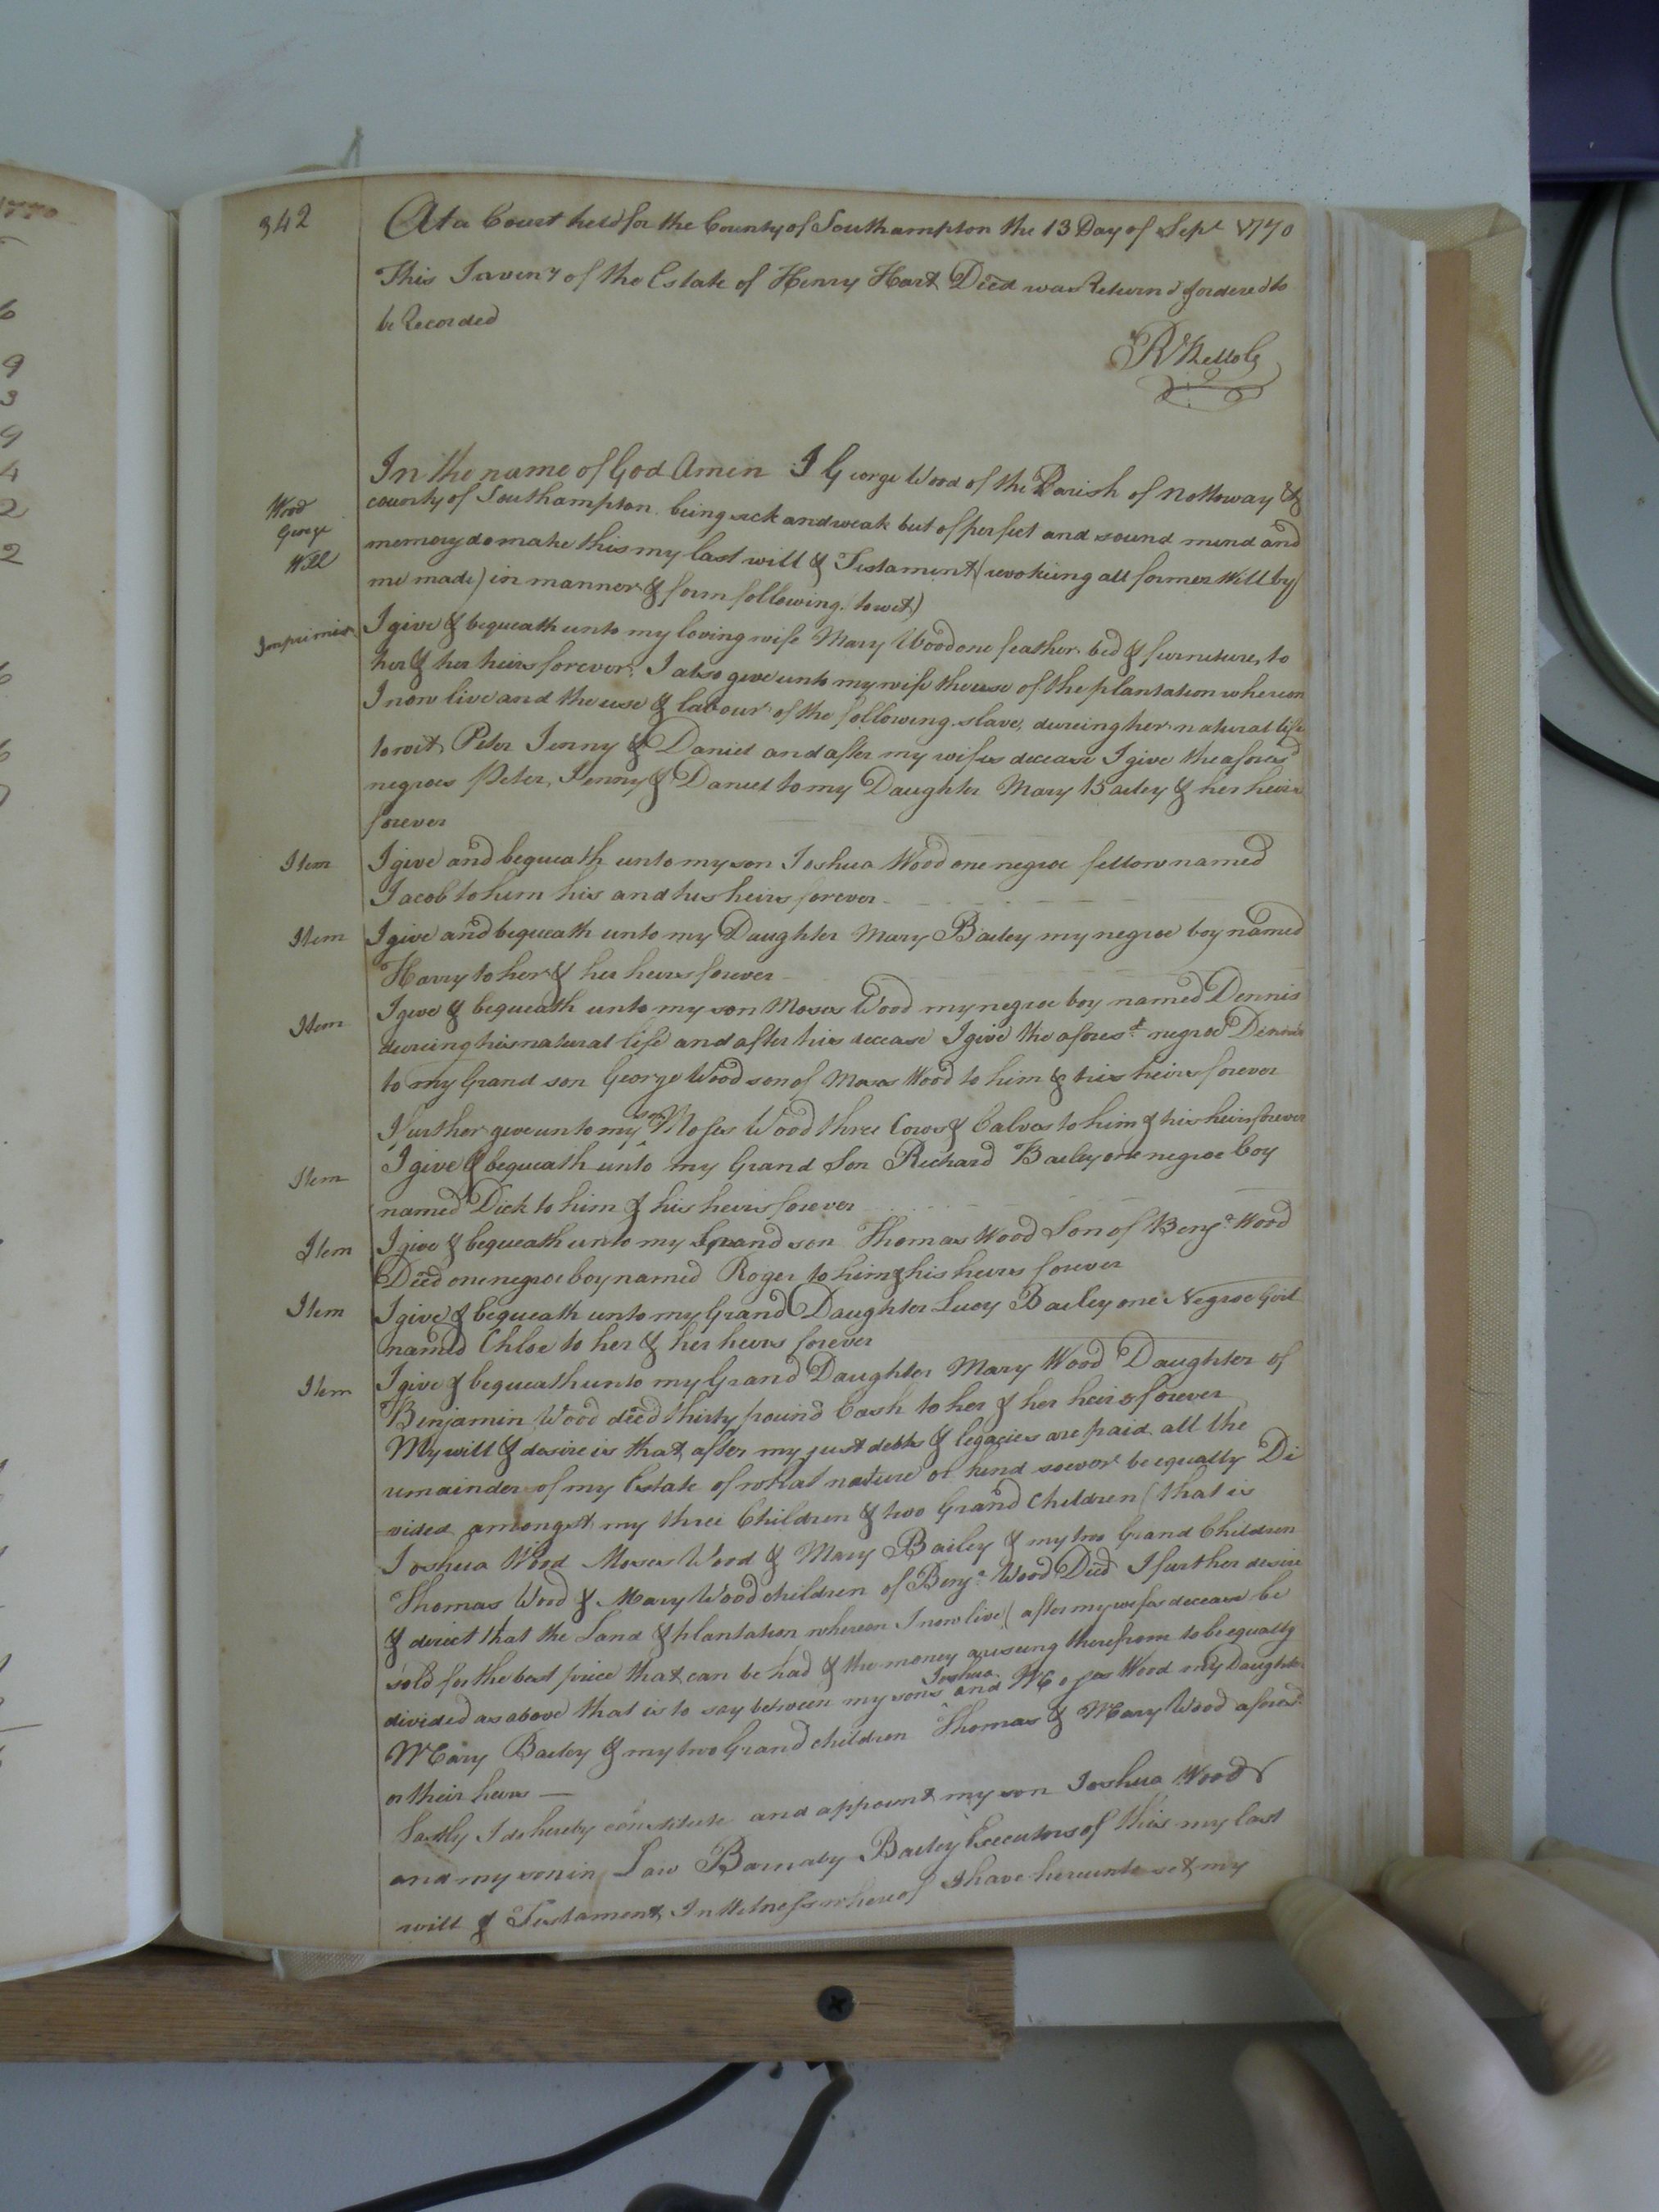 342
At a Court held for the County of Southampton the 13 Day of Sept 1770
This Inven^y of the Estate of Henry Hart Deed was Return'd & ordered to
be Recorded
In the name of God Amen I George Wood of the Parish of Nottoway &
county of Southampton being sick and weak but of perfect and sound mind and
Wood
George
Will
memory do make this my last will & Testament (revokeing all former Will by
me made) in manner & form following (to wit)
Imprimis I give & bequeath unto my loving wife Mary Wood one feather bed & furniture, to
her & her heirs forever. I also give unto my wife the use of the plantation whereon
I now live and the use & labour of the following slave, dureing her natural life
to wit Peter Jenny & Daniel and after my wifes decease I give the afores^d
negroes Peter, Jenny & Daniel to my Daughter Mary Bailey & her heirs
forever
Item I give and bequeath unto my son Joshua Wood one negroe fellow named
Jacob to him his and his heirs forever
Item I give and bequeath unto my Daughter Mary Bailey my negroe boy named
Harry to her & her heirs forever
Item I give & bequeath unto my son Moses Wood my negroe boy named Dennis
dureing his natural life and after his decease I give the afores^d negroe Dennis
to my Grand son George Wood son of Moses Wood to him & his heirs forever
I further give unto my son Moses Wood three Cows & Calves to him & his heirs forever
Item I give & bequeath unto my Grand Son Richard Bailey one negroe boy
named Dick to him & his heirs forever
Item I give & bequeath unto my Grand son Thomas Wood Son of Benj^a Wood
Deed one negroe boy named Roger to him & his heirs forever
Item I give & bequeath unto my Grand Daughter Lucy Bailey one Negroe Girl
named Chloe to her & her heirs forever
Item I give & bequeath unto my Grand Daughter Mary Wood Daughter of
Benjamin Wood deed thirty pound Cash to her & her heirs forever
My will & desire is that after my just debts & legacies are paid all the
remainder of my Estate of what nature or kind soever be equally Di
vided amongst my three Children & two Grand Children (that is
Joshua Wood Moses Wood & Mary Bailey & my two Grand Children
Thomas Wood & Mary Wood children of Benj^a Wood Deed I further desire
& direct that the Land & plantation whereon I now live (after my wifes decease be
sold for the best price that can be had & the money ariseing therefrom to be equally
divided as above that is to say between my sons Joshua and Moses Wood my Daughter
Mary Bailey & my two Grand children Thomas & Mary Wood afores^d
or their heirs —
Lastly I do hereby constitute and appoint my son Joshua Wood
and my son in Law Barnaby Bailey Executors of this my last
will & Testament In Witness whereof I have hereunto set my